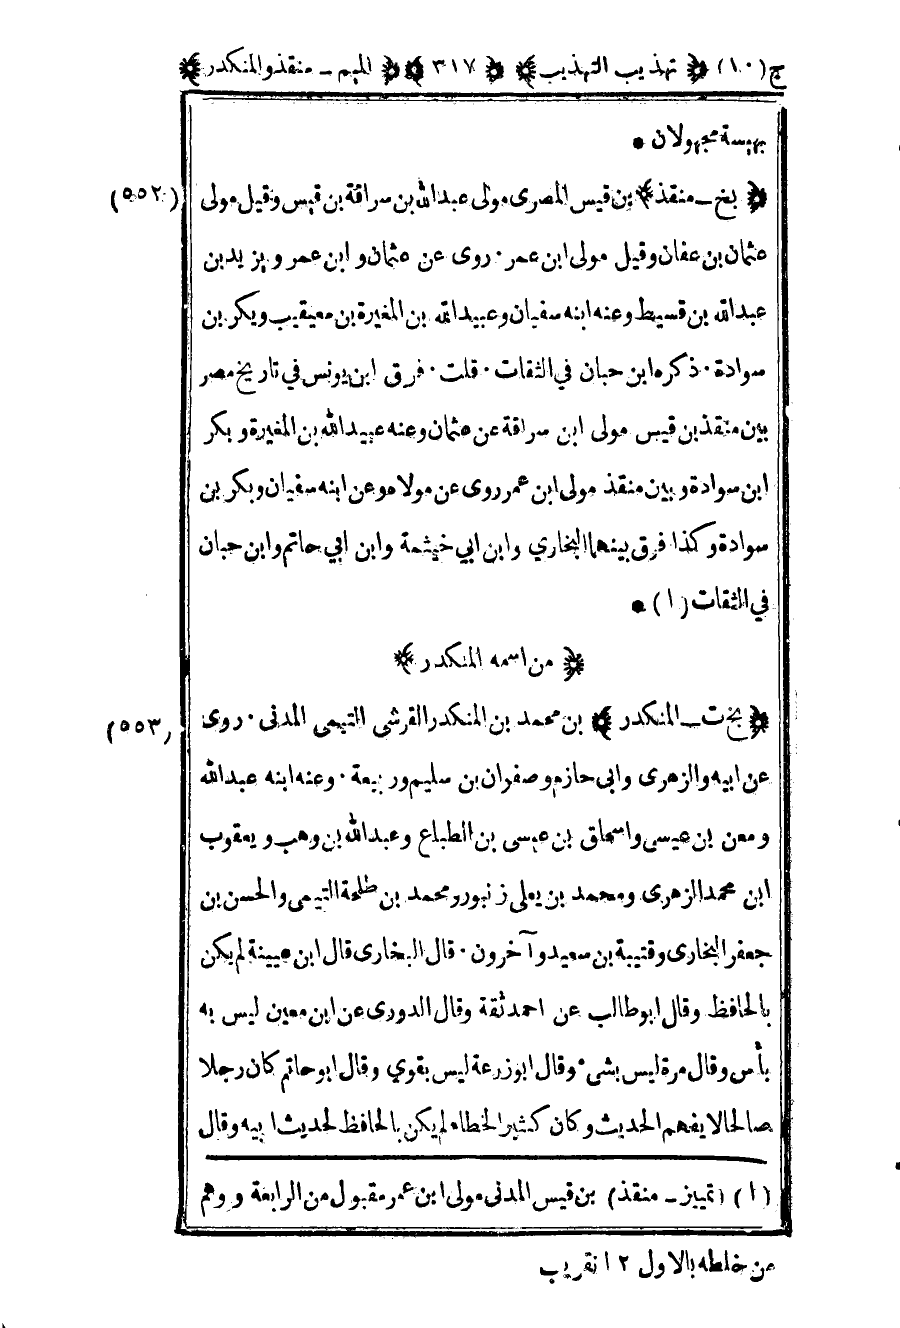 ج(١٠) ﴿ تهذيب التهذيب ﴾ ﴿ ٣١٧ ﴾ ﴿ الميم ـ منقذ والمنكدر ﴾
بهيسة مجهولان •
﴿ بخ ـ منقذ ﴾ بن قيس المصرى مولى عبدالله بن سراقة بن قيس وقيل مولى (٥٥٢)
عثمان بن عفان وقيل مولى ابن عمر · روى عن عثمان و ابن عمر و يزيد بن
عبدالله بن قسيط وعنه ابنه سفيان وعبيدالله بن المغيرة بن معيقيب وبكر بن
سوادة · ذكره ابن حبان في الثقات · قلت · فرق ابن يونس في تاريخ مصر
بين منقذ بن قيس مولى ابن سراقة عن عثمان وعنه عبيدالله بن المغيرة و بكر
ابن سوادة و بين منقذ مولى ابن عمر روى عن مولاه وعن ابنه سفيان وبكر بن
سوادة وكذا فرق بينهما البخاري وابن ابي خيثمة وابن ابي حاتم وابن حبان
في الثقات (١) •
﴿ من اسمه المنكدر ﴾
﴿ بخ ت ـ المنكدر ﴾ بن محمد بن المنكدر القرشى التيمى المدنى · روى (٥٥٣)
عن ابيه والزهرى وابى حازم وصفوان بن سليم وربيعة · وعنه ابنه عبدالله
ومعن بن عيسى واسحاق بن عيسى بن الطباع وعبدالله بن وهب و يعقوب
ابن محمد الزهرى ومحمد بن يعلى زنبور ومحمد بن طلحة التيمى والحسن بن
جعفر البخارى وقتيبة بن سعيد وآخرون · قال البخارى قال ابن عيينة لم يكن
بالحافظ وقال ابوطالب عن احمد ثقة وقال الدورى عن ابن معين ليس به
بأس وقال مرة ليس بشىء وقال ابوزرعة ليس بقوي وقال ابوحاتم كان رجلا
صالحا لا يفهم الحديث وكان كثير الخطاء لم يكن بالحافظ لحديث ابيه وقال
(١) (تمييز ـ منقذ) بن قيس المدنى مولى ابن عمر مقبول من الرابعة و وهم
من خلطه بالاول ١٢ تقريب